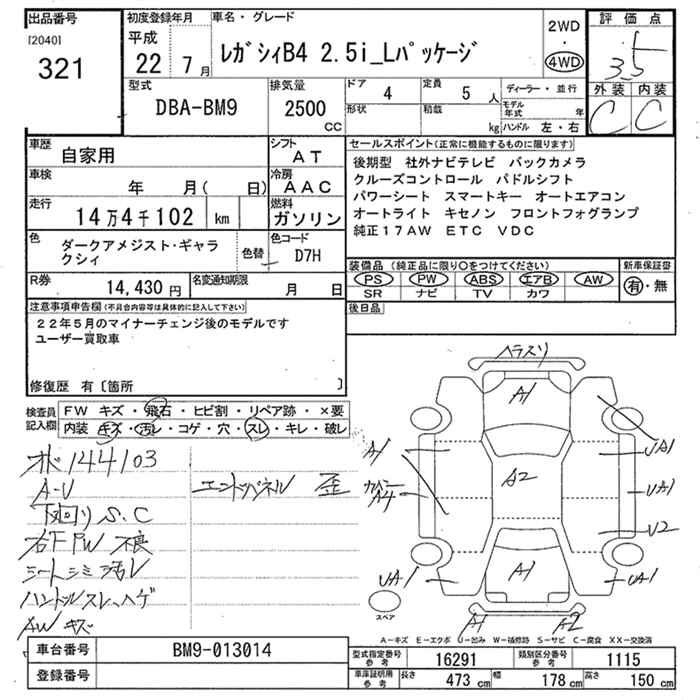 出品番号
[2040]
321
初度登録年月
平成
22 7月
車名・グレード
レガシィB4 2.5i_Lパッケージ
2WD
・
4WD
評価点
3.5
外装 内装
C C
型式
DBA-BM9
排気量
2500
CC
ドア
4
定員
5 人
形状
積載
kg
ディーラー・並行
モデル年式 年
ハンドル 左・右
車歴
自家用
シフト
AT
車検
年 月( 日)
冷房
AAC
走行
14万4千102 km
燃料
ガソリン
色
ダークアメジスト・ギャラクシィ
色替
色コード
D7H
R券
14,430円
名変通知期限
月 日
セールスポイント(正常に機能するものに限ります)
後期型 社外ナビテレビ バックカメラ
クルーズコントロール パドルシフト
パワーシート スマートキー オートエアコン
オートライト キセノン フロントフォグランプ
純正17AW ETC VDC
装備品(純正品に限り○をつけてください)
PS PW ABS エアB AW
SR ナビ TV カワ
新車保証書
有・無
後日品
注意事項申告欄(不具合内容等は具体的に記入して下さい)
22年5月のマイナーチェンジ後のモデルです
ユーザー買取車
修復歴 有〔箇所 〕
検査員記入欄
FW キズ・飛石・ヒビ割・リペア跡・×要
内装 キズ・汚レ・コゲ・穴・スレ・キレ・破レ
オド144103
A-U
下回りS.C
右F PW 不良
シートシミ汚レ
ハンドルスレ、ハゲ
AWキズ
エンドパネル 歪
ヘラスリ
A1
A1
UA1
A2
カバー
A4
UA1
U2
UA1
A1
UA1
A1
A2
スペア
A−キズ E−エクボ U−凹み W−補修跡 S−サビ C−腐食 XX−交換済
車台番号
BM9-013014
登録番号
型式指定番号
参考
16291
類別区分番号
参考
1115
車庫証明用
参考
長さ
473 cm
幅
178 cm
高さ
150 cm